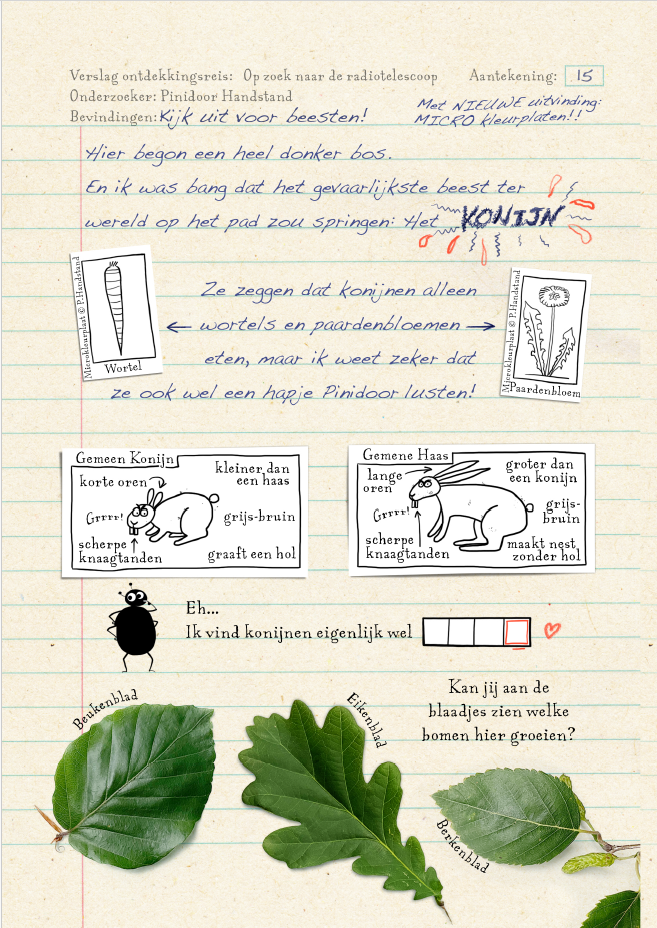 Verslag ontdekkingsreis: Op zoek naar de radiotelescoop Aantekening: 15
Onderzoeker: Pinidoor Handstand
Bevindingen: Kijk uit voor beesten!
Met NIEUWE uitvinding:
MICRO kleurplaten!!
Hier begon een heel donker bos.
En ik was bang dat het gevaarlijkste beest ter
wereld op het pad zou springen: Het KONIJN
Microkleurplaat © P.Handstand
Wortel
Ze zeggen dat konijnen alleen
wortels en paardenbloemen
eten, maar ik weet zeker dat
ze ook wel een hapje Pinidoor lusten!
Microkleurplaat © P.Handstand
Paardenbloem
Gemeen Konijn
korte oren
kleiner dan
een haas
Grrrr!
grijs-bruin
scherpe
knaagtanden
graaft een hol
Gemene Haas
lange
oren
groter dan
een konijn
Grrrr!
grijs-
bruin
scherpe
knaagtanden
maakt nest
zonder hol
Eh...
Ik vind konijnen eigenlijk wel
Kan jij aan de
blaadjes zien welke
bomen hier groeien?
Beukenblad
Eikenblad
Berkenblad